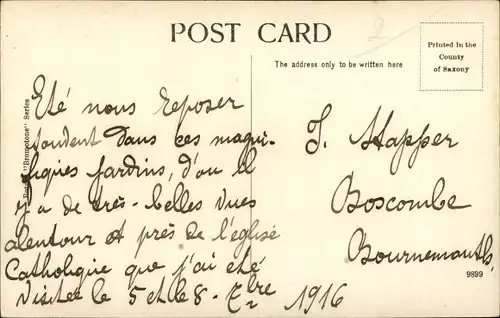 POST CARD
The address only to be written here
Printed in the
County
of Saxony
"Brompotone" Series
Eté nous reposer
soudent dans ces magni-
fiques jardins, d'ou il
y a de très-belles vues
alentour et près de l'église
Catholique que j'ai été
visitée le 5 et le 8 - 7bre 1916
J. Happer
Boscombe
Bournemouth
9899